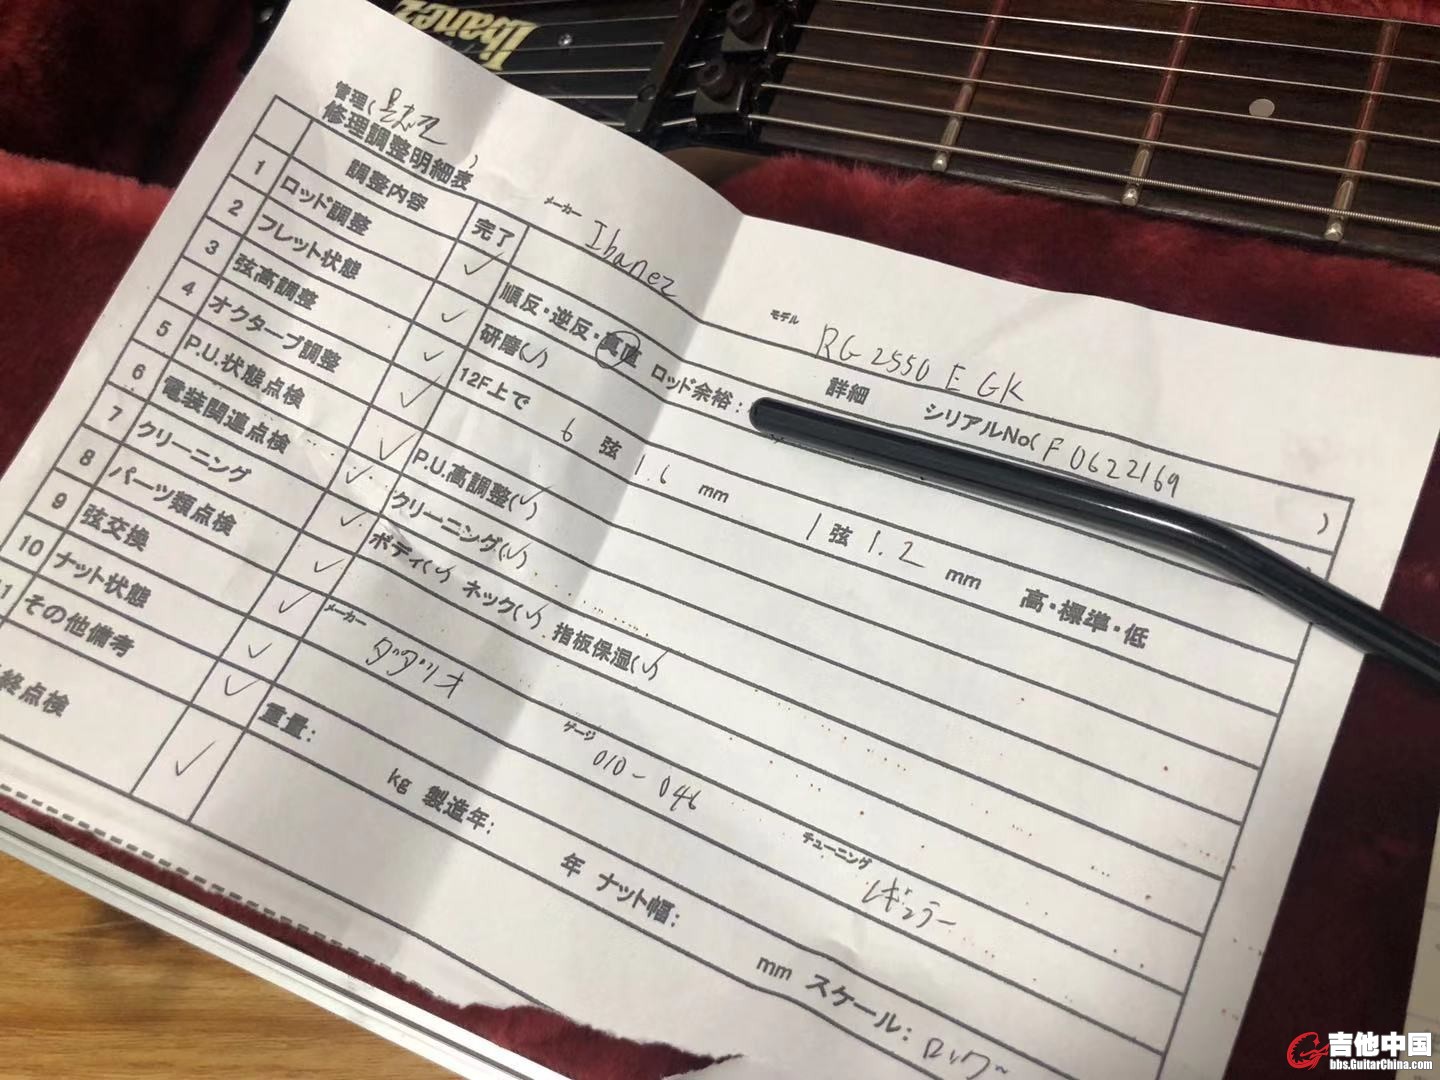 Ibanez
管理(
)
修理調整明細表
メーカー Ibanez
モデル RG2550E GK
調整内容 完了 詳細 シリアルNo( F0622169 )
1 ロッド調整 ✓ 順反・逆反・真直 ロッド余裕:
2 フレット状態 ✓ 研磨(✓)
3 弦高調整 ✓ 12F上で 6 弦 1.6 mm 1 弦 1.2 mm 高・標準・低
4 オクターブ調整 ✓
5 P.U.状態点検 ✓ P.U.高調整(✓)
6 電装関連点検 ✓ クリーニング(✓)
7 クリーニング ✓ ボディ(✓) ネック(✓) 指板保湿(✓)
8 パーツ類点検 ✓
9 弦交換 ✓ メーカー ダダリオ ゲージ 010-046 チューニング レギュラー
10 ナット状態 ✓
11 その他備考 ✓ 重量: kg 製造年: 年 ナット幅: mm スケール:
終点検 ✓
吉他中国
bbs.GuitarChina.com